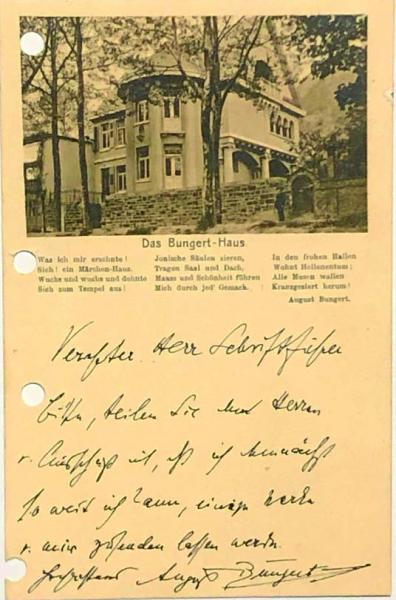 Das Bungert-Haus
Was ich mir ersehnte!
Sieh! ein Märchen-Haus.
Wuchs und wuchs und dehnte
Sich zum Tempel aus!
Jonische Säulen zieren,
Tragen Saal und Dach,
Maass und Schönheit führen
Mich durch jed' Gemach.
In den frohen Hallen
Wohnt Hellenentum;
Alle Musen wallen
Kranzgeziert herum!
August Bungert.
Verehrter Herr Schriftführer
Bitte, teilen Sie den Herren
v. Ausschuß mit, daß ich demnächst
so weit ich kann, einige Werke
v. mir zusenden lassen werde.
August Bungert